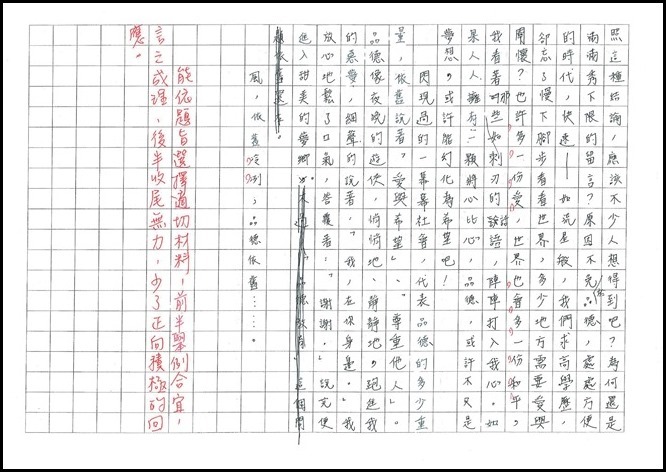 照這種結論，應該不少人想得到吧？為何還是
兩兩秀下限的留言？原因不免品德，處處方便
的時代，快速——如流星般，我們求高學歷，
卻忘了慢下腳步看看世界多少地方需要愛與
關懷？也許多一份愛，世界也會多一份和平。
我看著那些如刺刃的話語，陣陣打入我心。如
果人人擁有一顆將心比心，品德，或許不只是
夢想，或許能幻化為希望吧！
閃現過的一幕幕社會，代表品德的多少重
量，依舊說著「愛與希望」、「尊重他人」。
品德像夜晚的遊俠，悄悄地、靜靜地，跑進我
的惡夢，細聲的說著：「我在你身邊。」我
放心地鬆了口氣，答覆著：「謝謝。」說完便
進入甜美的夢鄉。
風，依舊冷冽；品德依舊……。
能依題旨選擇適切材料，前半舉例合宜，
言之成理，後半收尾無力，少了正向積極的回
應。